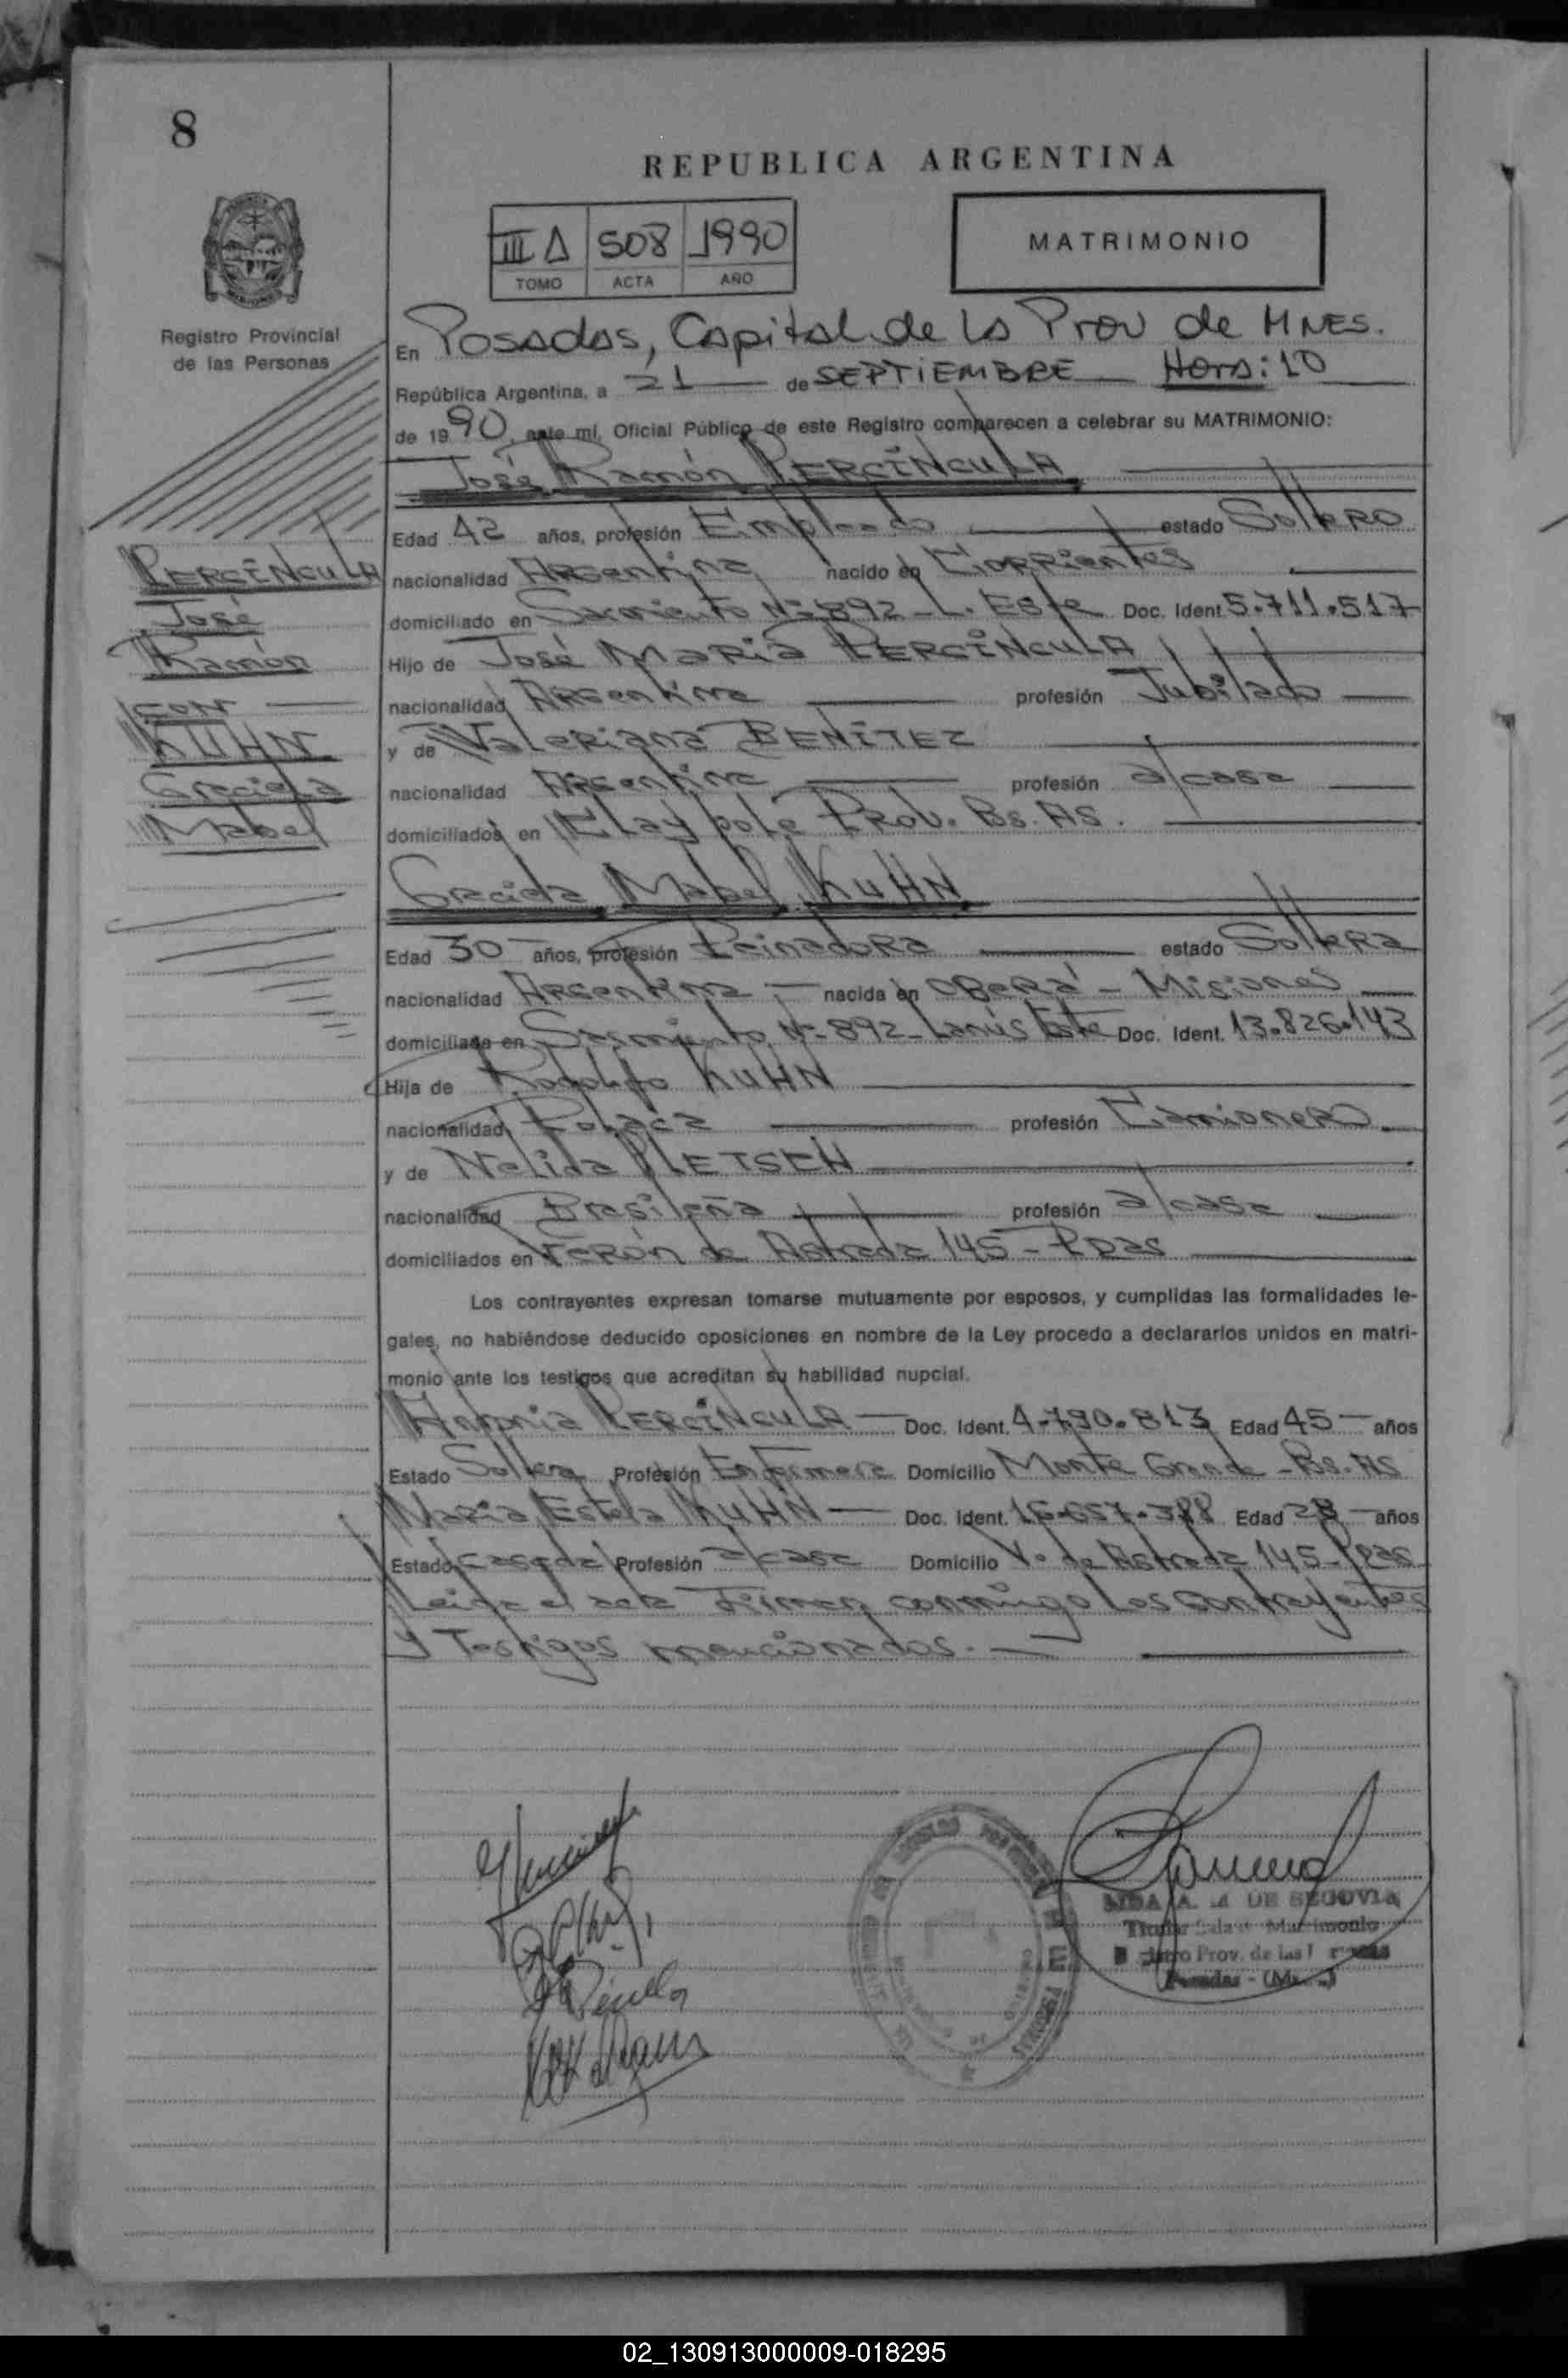 8
REPUBLICA ARGENTINA
III A 508 1990
TOMO ACTA AÑO
MATRIMONIO
Registro Provincial
de las Personas
En Posadas, Capital de la Prov de MNES.
República Argentina, a 21 de SEPTIEMBRE Hora: 10
de 1990, ante mí, Oficial Público de este Registro comparecen a celebrar su MATRIMONIO:
José Ramón PERCÍNCULA
Edad 42 años, profesión Empleado estado Soltero
nacionalidad Argentina nacido en Corrientes
domiciliado en Sarmiento Nº 892 - L. Este Doc. Ident. 5.711.517
Hijo de José María PERCÍNCULA
nacionalidad Argentina profesión Jubilado
y de Valeriana BENÍTEZ
nacionalidad Argentina profesión a/casa
domiciliados en Claypole Prov. Bs. AS.
PERCÍNCULA
José
Ramón
CON
KUHN
Graciela
Mabel
Graciela Mabel KUHN
Edad 30 años, profesión Peinadora estado Soltera
nacionalidad Argentina nacida en Oberá - Misiones
domiciliada en Sarmiento Nº 892 - Lanús Este Doc. Ident. 13.826.143
Hija de Rodolfo KUHN
nacionalidad Polaca profesión Camionero
y de Nelida PLETSCH
nacionalidad Brasileña profesión a/casa
domiciliados en Verón de Astrada 145 - Pdas
Los contrayentes expresan tomarse mutuamente por esposos, y cumplidas las formalidades le-
gales, no habiéndose deducido oposiciones en nombre de la Ley procedo a declararlos unidos en matri-
monio ante los testigos que acreditan su habilidad nupcial.
Antonia PERCÍNCULA Doc. Ident. 4.790.813 Edad 45 años
Estado Soltera Profesión Enfermera Domicilio Monte Grande - Bs. AS
María Estela KUHN Doc. Ident. 16.657.388 Edad 28 años
Estado casada Profesión a/casa Domicilio V. de Astrada 145 - Pdas
Leida el acta Firman conmigo los contrayentes
y Testigos mencionados.
DE SEGOVIA
Titular Sala Matrimonio
Prov. de las
Posadas
02_130913000009-018295